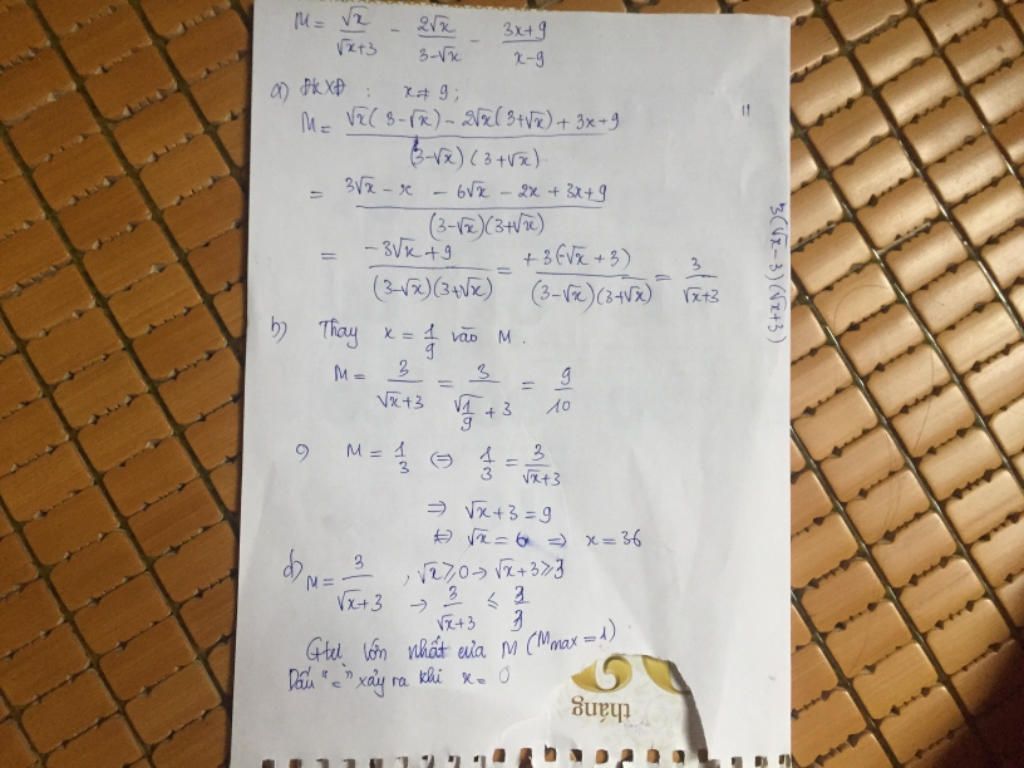 M = √x/(√x+3) - 2√x/(3-√x) - (3x+9)/(x-9)
a) ĐKXĐ : x ≠ 9 ;
M = (√x(3-√x) - 2√x(3+√x) + 3x+9)/((3-√x)(3+√x))
= (3√x - x - 6√x - 2x + 3x+9)/((3-√x)(3+√x))
= (-3√x+9)/((3-√x)(3+√x)) = (+3(-√x+3))/((3-√x)(3+√x)) = 3/(√x+3)
b) Thay x = 1/9 vào M .
M = 3/(√x+3) = 3/(√(1/9)+3) = 9/10
c) M = 1/3 ⇔ 1/3 = 3/(√x+3)
⇒ √x+3 = 9
⇔ √x = 6 ⇒ x = 36
d) M = 3/(√x+3) , √x ⩾ 0 → √x+3 ⩾ 3
→ 3/(√x+3) ⩽ 3/3
Gtrị lớn nhất của M (Mmax = 1)
Dấu "=" xảy ra khi x = 0
3(√x-3)(√x+3)
11
tháng